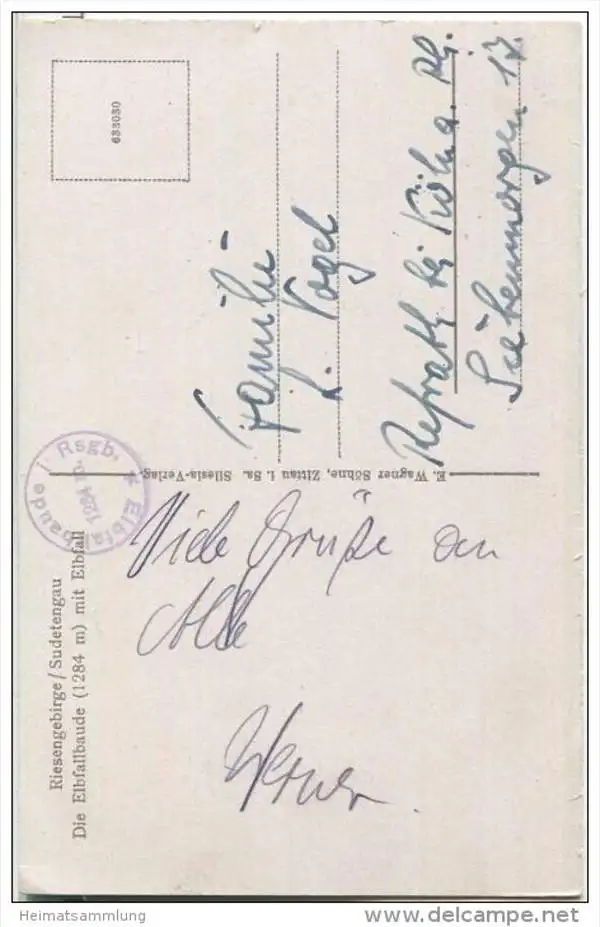 Riesengebirge/Sudetengau
Die Elbfallbaude (1284 m) mit Elbfall
Elbfallbaude i. Rsgb. *
1284 m.
E. Wagner Söhne, Zittau i. Sa. Silesia-Verlag.
633030
Viele Grüße an
Alle
Werner.
Familie
L. Vogel
Refrath bei Köln a. Rh.
Siebenmorgen 17
Heimatsammlung
www.delcampe.net